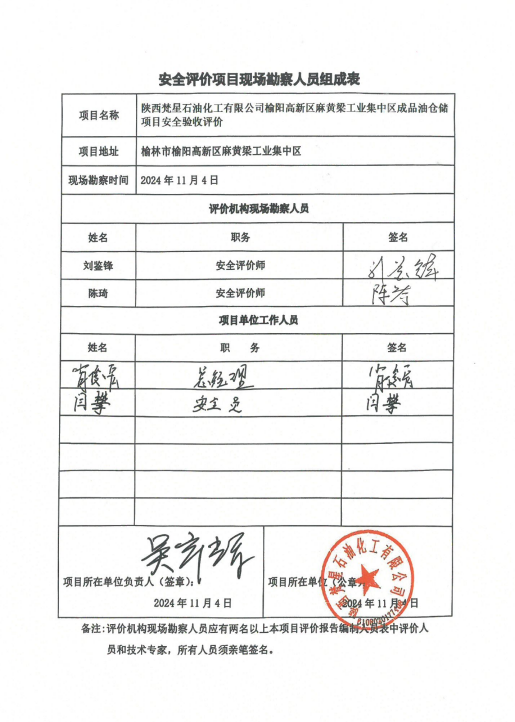 安全评价项目现场勘察人员组成表
项目名称
陕西梵星石油化工有限公司榆阳高新区麻黄梁工业集中区成品油仓储
项目安全验收评价
项目地址 榆林市榆阳高新区麻黄梁工业集中区
现场勘察时间 2024 年 11 月 4 日
评价机构现场勘察人员
姓名 职务 签名
刘鉴锋 安全评价师 刘鉴锋
陈琦 安全评价师 陈琦
项目单位工作人员
姓名 职 务 签名
总经理
闫攀 安全员 闫攀
项目所在单位负责人（签章）： 项目所在单位（公章）
2024 年 11 月 4 日 2024 年 11 月 4 日
陕西梵星石油化工有限公司
备注：评价机构现场勘察人员应有两名以上本项目评价报告编制人员表中评价人
员和技术专家，所有人员须亲笔签名。